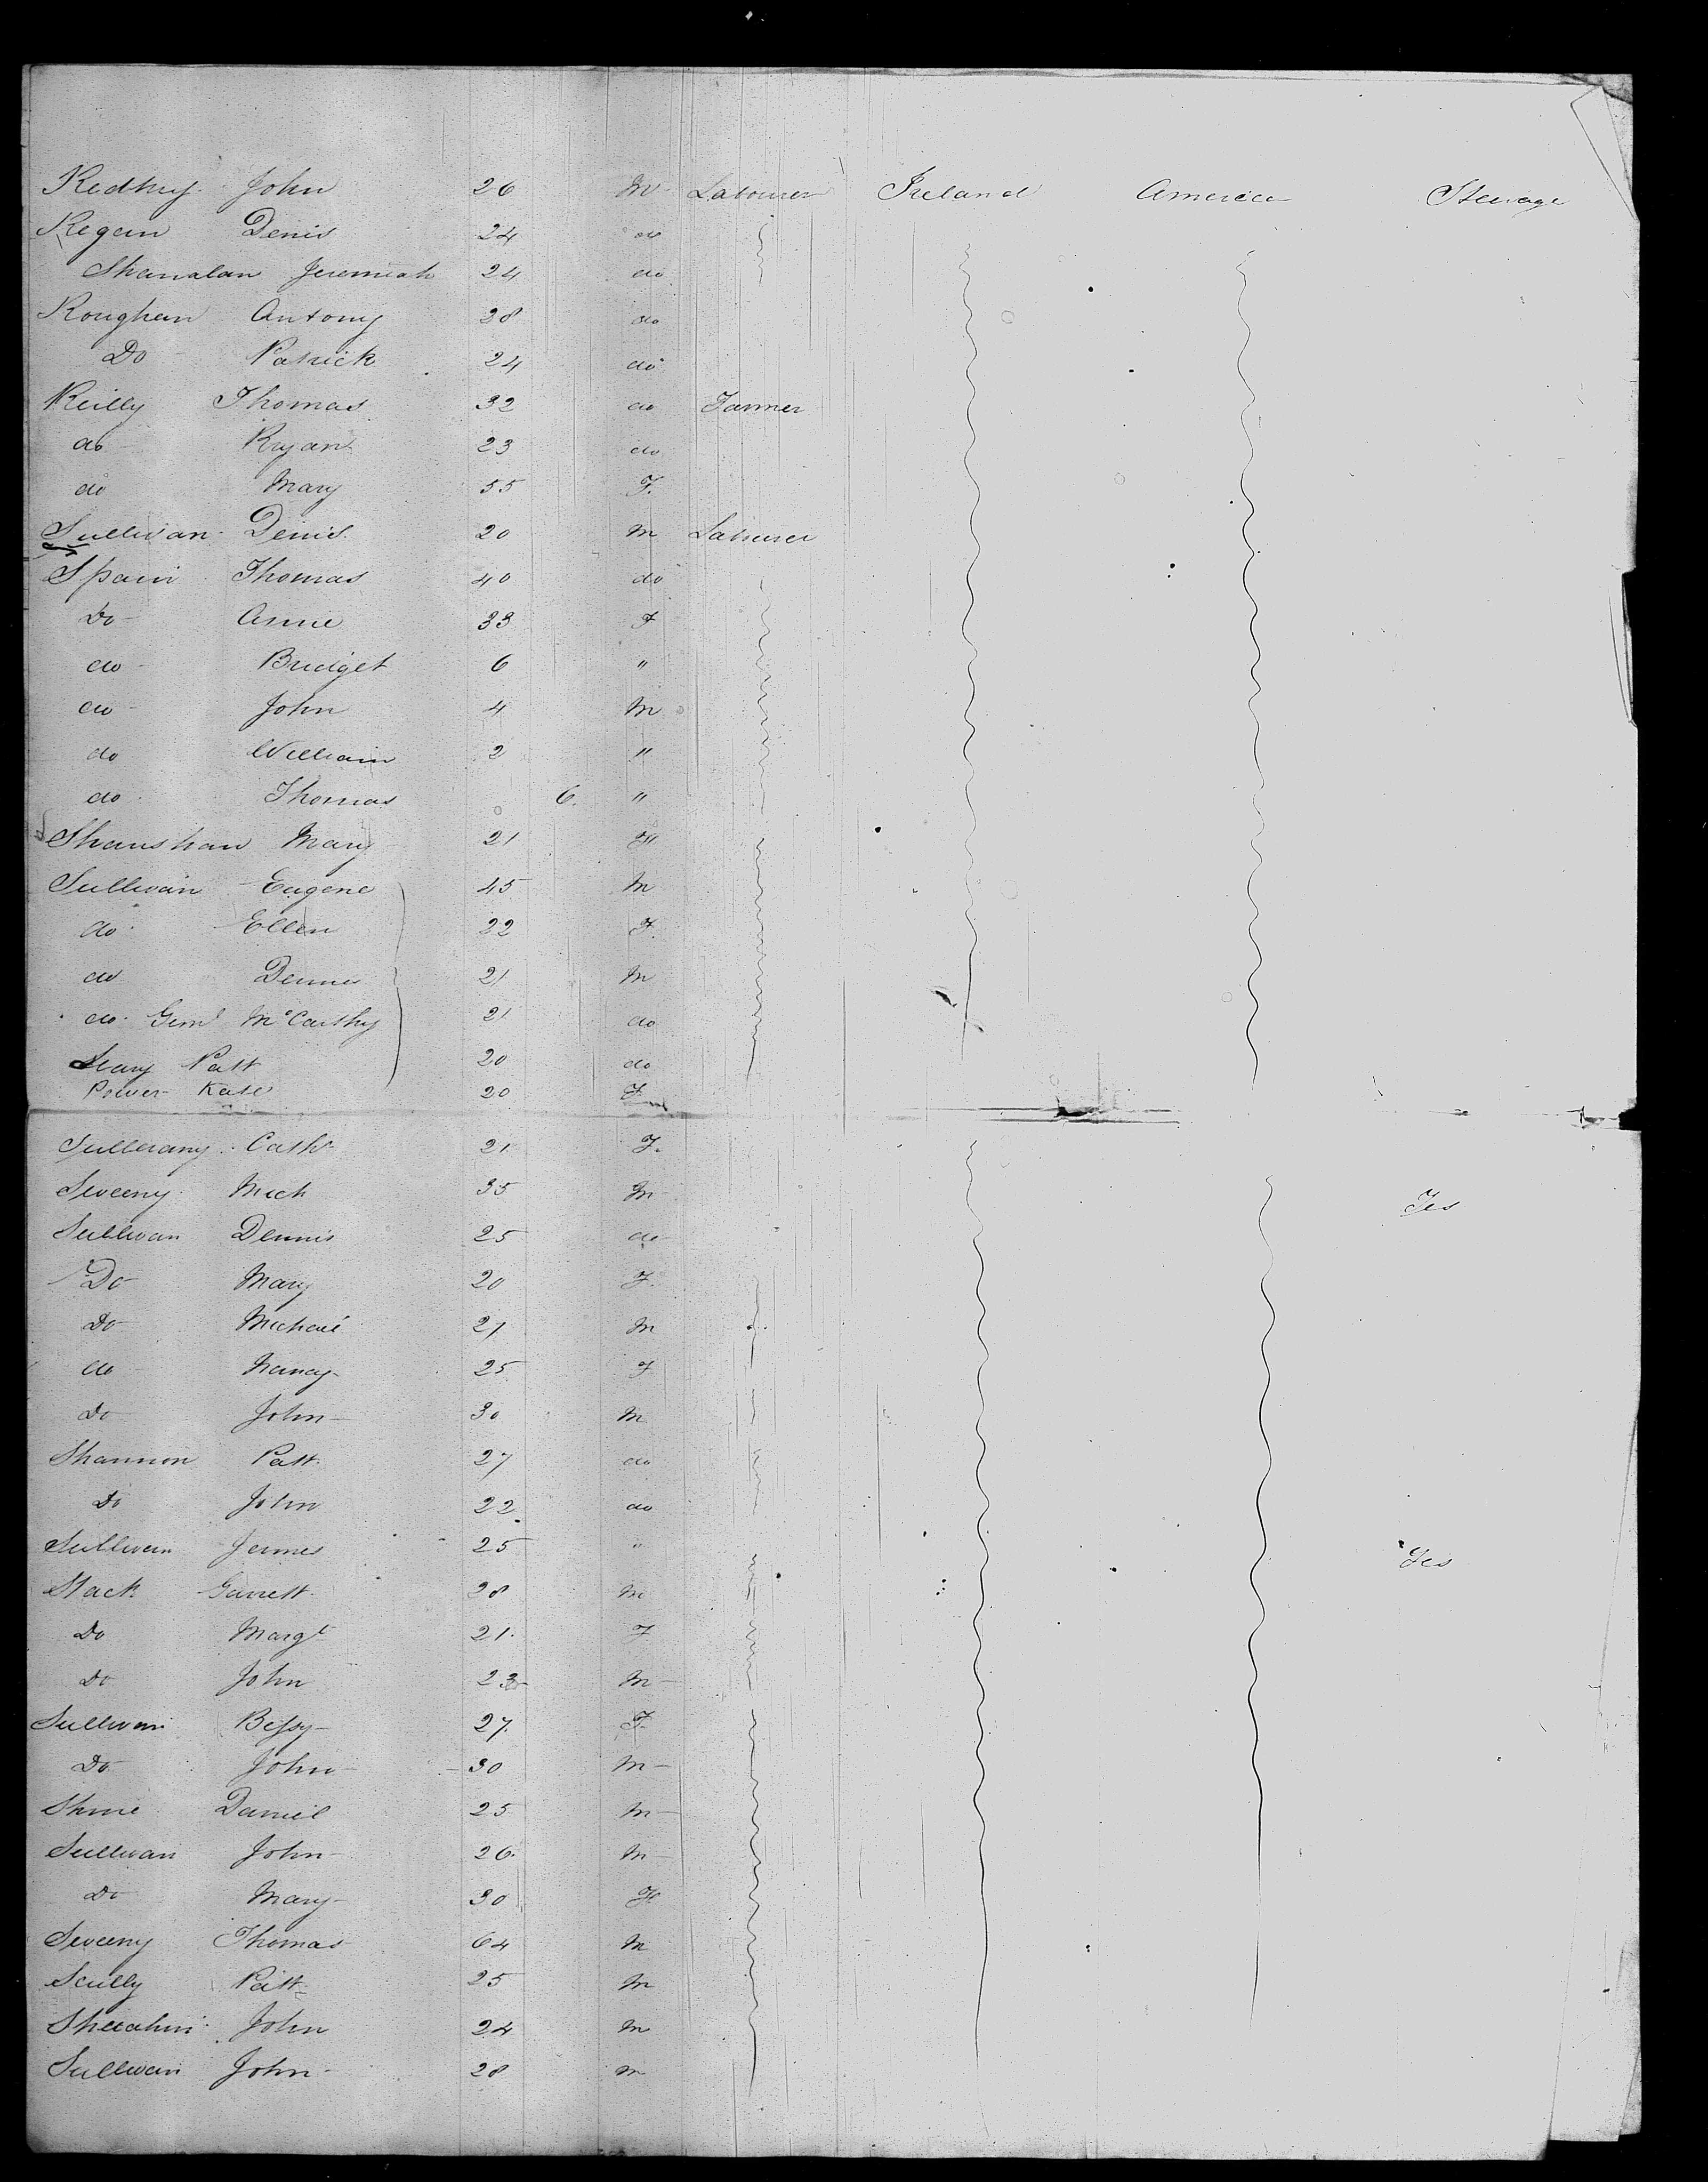 Redhy John 26 M Labourer Ireland America Steerage
Regan Denis 24 do
Shanalan Jeremiah 24 do
Roughan Antony 28 do
Do Patrick 24 do
Reilly Thomas 32 do Farmer
do Bryan 23 do
do Mary 55 F.
Sullivan Denis 20 M Labourer
Spain Thomas 40 do
Do Annie 33 F
do Bridget 6 "
do John 4 M
do William 2 "
do Thomas 6. "
Shanshan Mary 21 F
Sullivan Eugene 45 M
do Ellen 22 F.
do Dennis 21 M
do McCarthy 21 do
Patt 20 do
Power Kate 20 F
Cath 21 F.
Sweeny Mich 35 M Yes
Sullivan Dennis 25 do
Do Mary 20 F.
Do Michael 27 M
do Nancy 25 F
Do John 30 M
Shannon Patt. 27 do
Do John 22 do
Sullivan James 25 " Yes
Stack Garrett 28 M
Do Margt 21. F
Do John 23 M
Sullivan Bessy 27. F.
Do John 30 M
Shine Daniel 25 M
Sullivan John 26. M
Do Mary 30 F
Sweeny Thomas 64 M
Scully Patt 25 M
John 24 M
Sullivan John 28 M